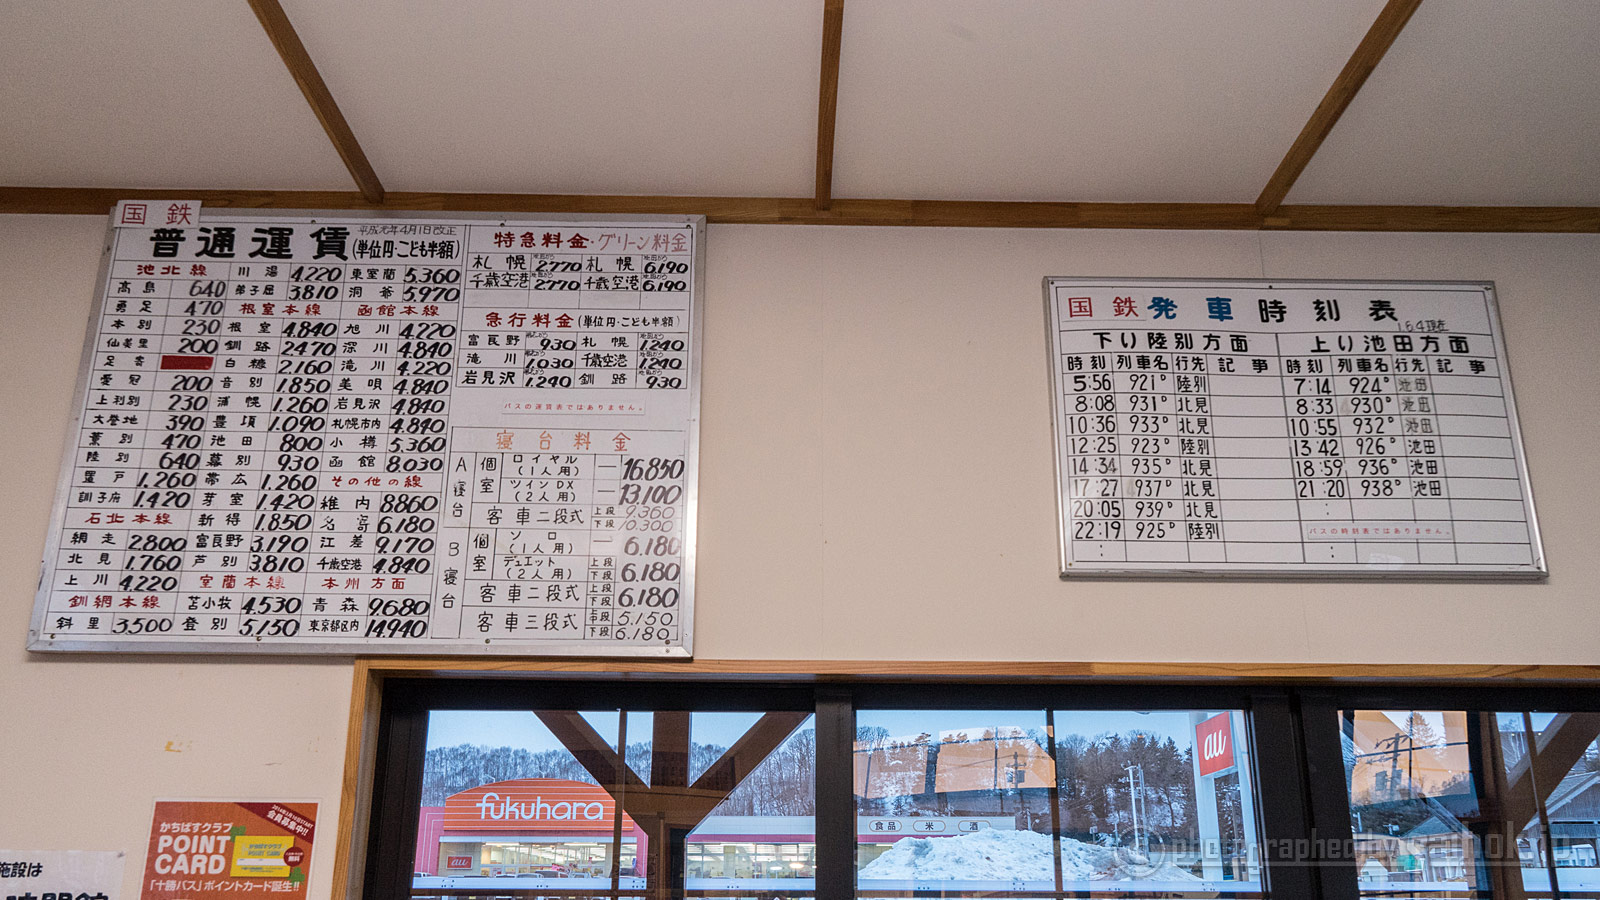 国鉄
普通運賃
平成元年4月1日改正
(単位円・こども半額)
池北線 川湯 4.220 東室蘭 5.360
高島 640 弟子屈 3.810 洞爺 5.970
勇足 470 根室本線 函館本線
本別 230 根室 4.840 旭川 4.220
仙美里 200 釧路 2.470 深川 4.840
足寄 白糠 2.160 滝川 4.220
愛冠 200 音別 1.850 美唄 4.840
上利別 230 浦幌 1.260 岩見沢 4.840
大誉地 390 豊頃 1.090 札幌市内 4.840
薫別 470 池田 800 小樽 5.360
陸別 640 幕別 930 函館 8.030
置戸 1.260 帯広 1.260 その他の線
訓子府 1.420 芽室 1.420 稚内 8860
石北本線 新得 1.850 名寄 6.180
網走 2.800 富良野 3.190 江差 9.170
北見 1.760 芦別 3.810 千歳空港 4.840
上川 4.220 室蘭本線 本州方面
釧網本線 苫小牧 4.530 青森 9.680
斜里 3.500 登別 5.150 東京都区内 14.940
特急料金・グリーン料金
札幌 2770 札幌 6.190
千歳空港 2770 千歳空港 6.190
急行料金(単位円・こども半額)
富良野 930 札幌 1.240
滝川 1.030 千歳空港 1.240
岩見沢 1.240 釧路 930
バスの運賃表ではありません。
寝台料金
A寝台 個室 ロイヤル(1人用) 16.850
ツインDX(2人用) 13.100
客車二段式 上段 9.360
下段 10.300
B寝台 個室 ソロ(1人用) 6.180
デュエット(2人用) 上段 下段 6.180
客車二段式 上段 下段 6.180
客車三段式 上段中段 5.150
下段 6.180
国鉄発車時刻表
1.6.4現在
下り陸別方面 上り池田方面
時刻 列車名 行先 記事 時刻 列車名 行先 記事
5:56 921D 陸別 7:14 924D 池田
8:08 931D 北見 8:33 930D 池田
10:36 933D 北見 10:55 932D 池田
12:25 923D 陸別 13:42 926D 池田
14:34 935D 北見 18:59 936D 池田
17:27 937D 北見 21:20 938D 池田
20:05 939D 北見
22:19 925D 陸別
バスの時刻表ではありません。
fukuhara
au
au
食品 米 酒
会員募集中!!
かちばすクラブ
POINT
CARD
無料
「十勝バス」ポイントカード誕生!!
施設は